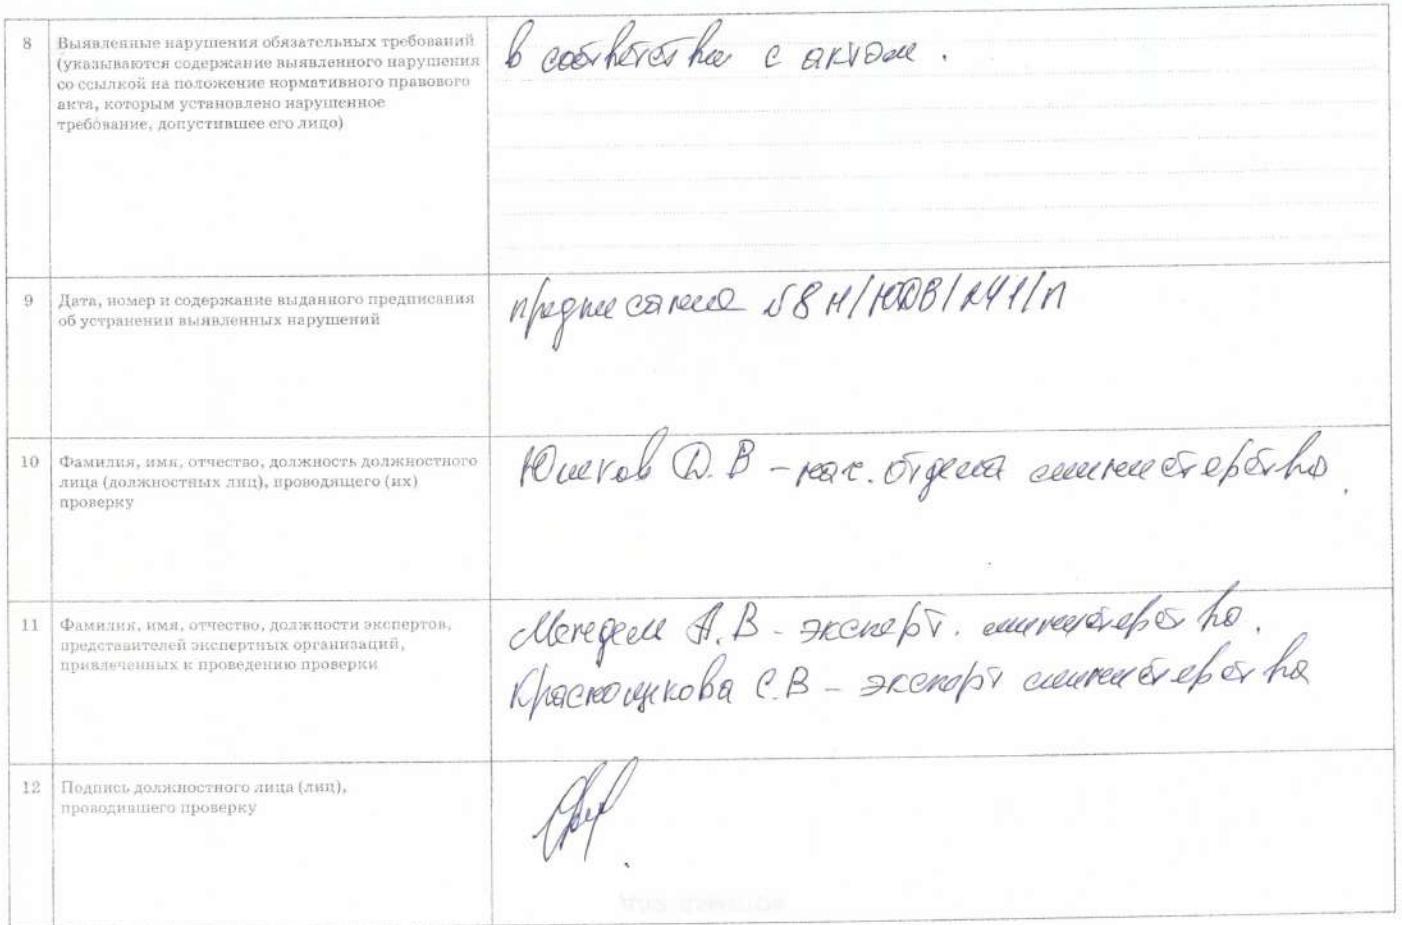 8
Выявленные нарушения обязательных требований
(указываются содержание выявленного нарушения
со ссылкой на положение нормативного правового
акта, которым установлено нарушенное
требование, допустившее его лицо)
в соответствии с актом.
9
Дата, номер и содержание выданного предписания
об устранении выявленных нарушений
предписание
10
Фамилия, имя, отчество, должность должностного
лица (должностных лиц), проводящего (их)
проверку
Юшков Д. В - нач. отдела министерства
11
Фамилия, имя, отчество, должности экспертов,
представителей экспертных организаций,
привлеченных к проведению проверки
А. В - эксперт. министерства.
Краснощекова С. В - эксперт министерства
12
Подпись должностного лица (лиц),
проводившего проверку